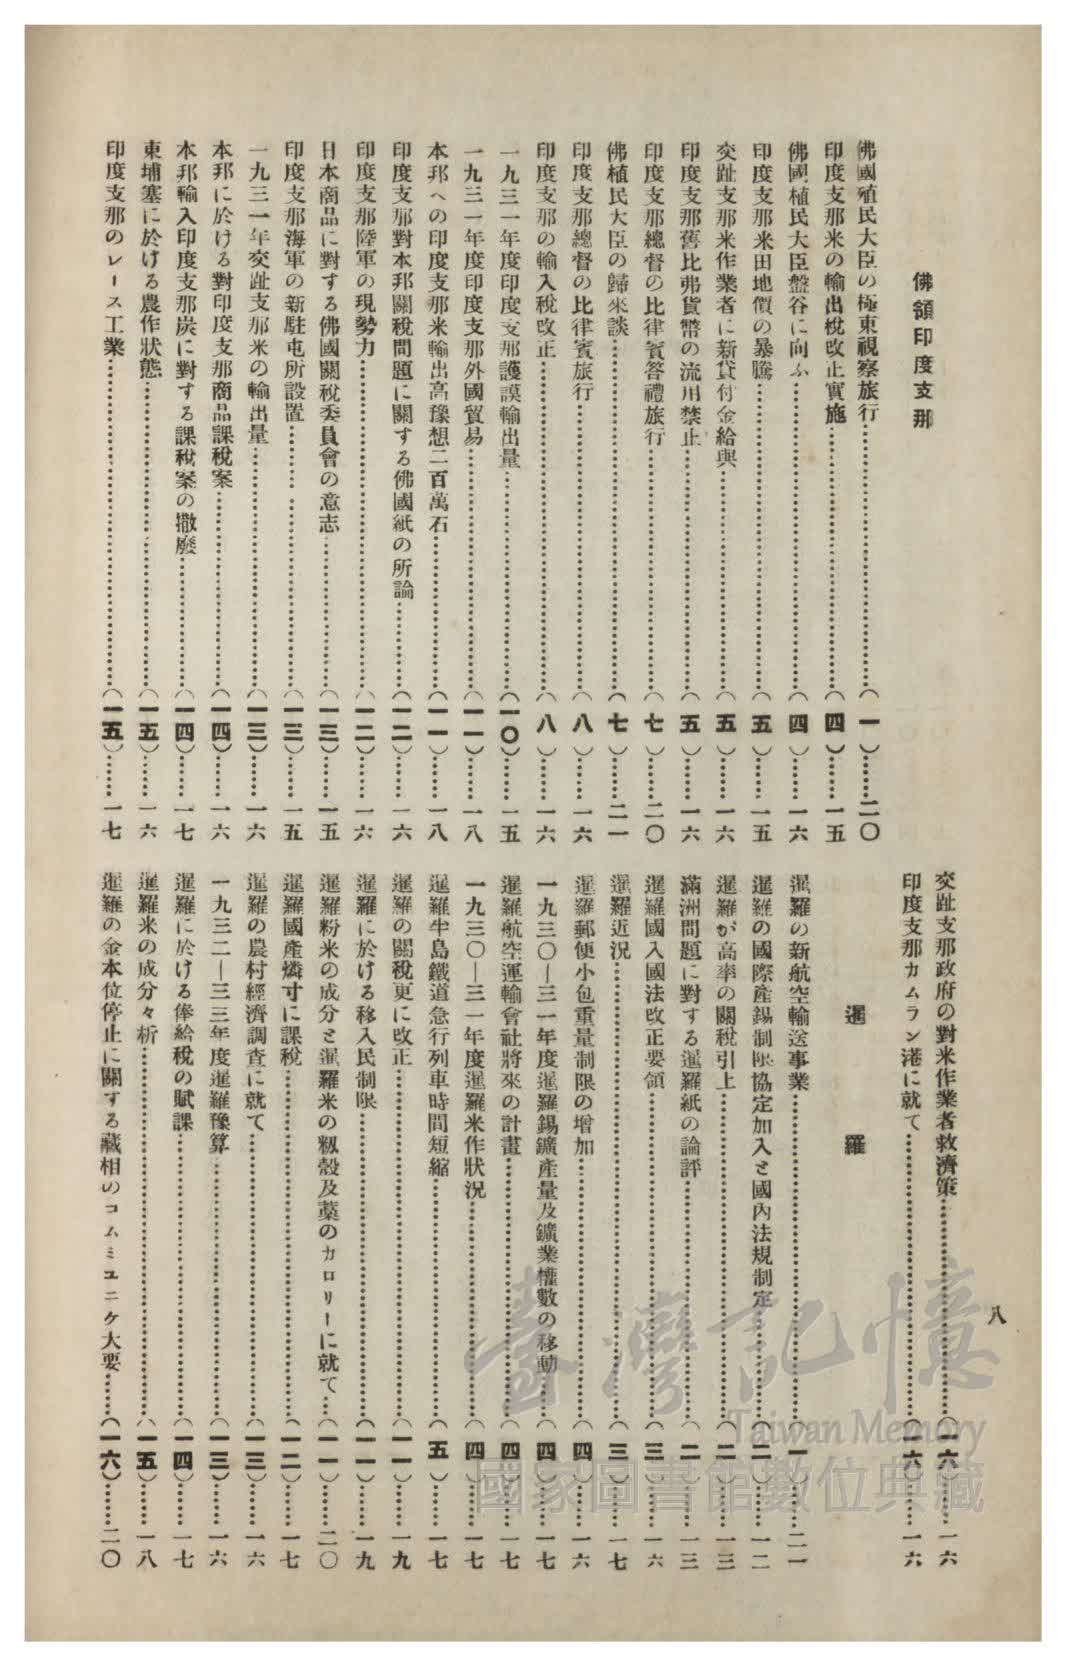 佛領印度支那
佛國殖民大臣の極東視察旅行……(一)……二〇
印度支那米の輸出稅改正實施……(四)……一五
佛國植民大臣盤谷に向ふ……(四)……一六
印度支那米田地價の暴騰……(五)……一五
交趾支那米作業者に新貸付金給與……(五)……一六
印度支那舊比弗貨幣の流用禁止……(五)……一六
印度支那總督の比律賓答禮旅行……(七)……二〇
佛植民大臣の歸來談……(七)……二一
印度支那總督の比律賓旅行……(八)……一六
印度支那の輸入稅改正……(八)……一六
一九三一年度印度支那護謨輸出量……(一〇)……一五
一九三一年度印度支那外國貿易……(一一)……一八
本邦への印度支那米輸出高豫想二百萬石……(一一)……一八
印度支那對本邦關稅問題に關する佛國紙の所論……(一二)……一六
印度支那陸軍の現勢力……(一二)……一六
日本商品に對する佛國關稅委員會の意志……(一三)……一五
印度支那海軍の新駐屯所設置……(一三)……一五
一九三一年交趾支那米の輸出量……(一三)……一六
本邦に於ける對印度支那商品課稅案……(一四)……一六
本邦輸入印度支那炭に對する課稅案の撤廢……(一四)……一七
東埔塞に於ける農作狀態……(一五)……一六
印度支那のレース工業……(一五)……一七
交趾支那政府の對米作業者救濟策……(一六)……一六
印度支那カムラン港に就て……(一六)……一六
暹羅
暹羅の新航空輸送事業……(一)……二一
暹羅の國際產錫制限協定加入と國內法規制定……(二)……一二
暹羅が高率の關稅引上……(二)……一三
滿洲問題に對する暹羅紙の論評……(二)……一三
暹羅國入國法改正要領……(三)……一六
暹羅近況……(三)……一七
暹羅郵便小包重量制限の增加……(四)……一六
一九三〇—三一年度暹羅錫鑛產量及鑛業權數の移動……(四)……一七
暹羅航空運輸會社將來の計畫……(四)……一七
一九三〇—三一年度暹羅米作狀況……(四)……一七
暹羅半島鐵道急行列車時間短縮……(五)……一七
暹羅の關稅更に改正……(一一)……一九
暹羅に於ける移入民制限……(一一)……一九
暹羅粉米の成分と暹羅米の籾殼及藁のカロリーに就て……(一一)……二〇
暹羅國產燐寸に課稅……(一二)……一七
暹羅の農村經濟調查に就て……(一三)……一六
一九三二—三三年度暹羅豫算……(一三)……一六
暹羅に於ける俸給稅の賦課……(一四)……一七
暹羅米の成分々析……(一五)……一八
暹羅の金本位停止に關する藏相のコムミユニケ大要……(一六)……二〇
八
臺灣記憶
Taiwan Memory
國家圖書館數位典藏